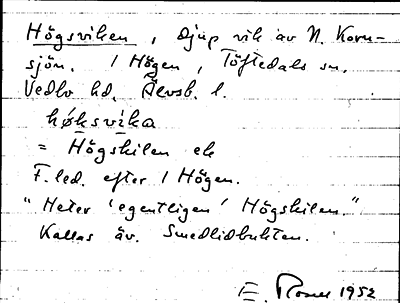 Högsviken, djup vik av N. Korn-
sjön. / Högen, Töftedals sn.
Vedbo hd. Älvsb. l.
hǿksvika
= Högskilen ek
F. led. efter / Högen.
"Heter 'egentligen' Högskilen."
Kallas äv. Smedlidbukten.
E. 1952